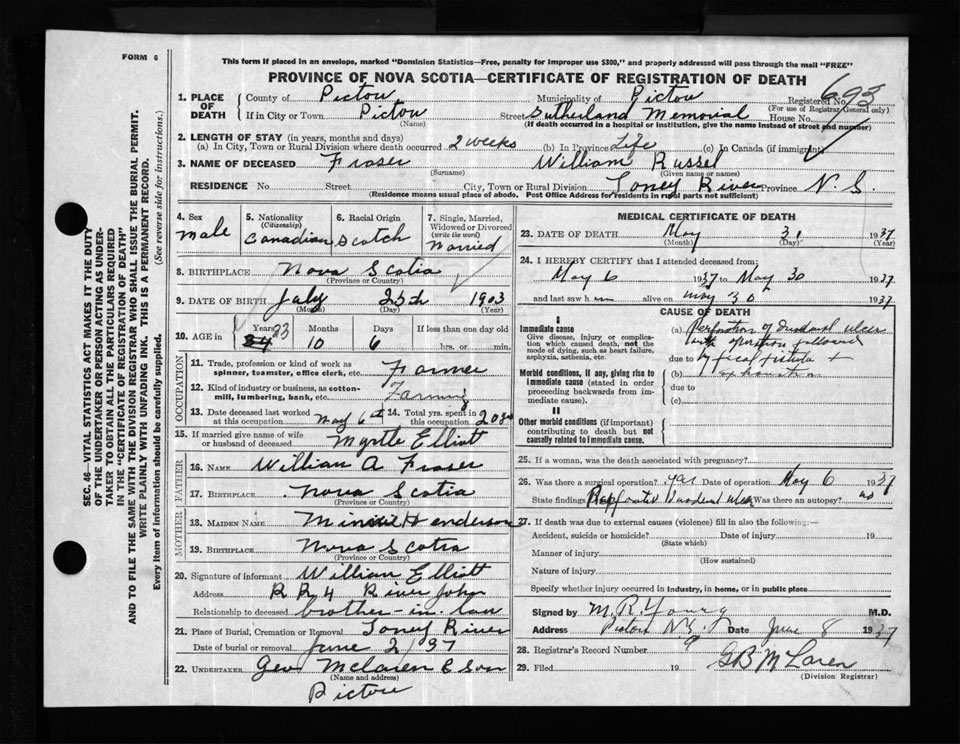 FORM 6
This form if placed in an envelope, marked "Dominion Statistics—Free, penalty for improper use $300," and properly addressed will pass through the mail "FREE"
PROVINCE OF NOVA SCOTIA—CERTIFICATE OF REGISTRATION OF DEATH
SEC. 46—VITAL STATISTICS ACT MAKES IT THE DUTY
OF THE UNDERTAKER OR PERSON ACTING AS UNDER-
TAKER TO OBTAIN ALL THE PARTICULARS REQUIRED
IN THE "CERTIFICATE OF REGISTRATION OF DEATH"
AND TO FILE THE SAME WITH THE DIVISION REGISTRAR WHO SHALL ISSUE THE BURIAL PERMIT.
WRITE PLAINLY WITH UNFADING INK. THIS IS A PERMANENT RECORD.
Every item of information should be carefully supplied. (See reverse side for instructions.)
1. PLACE OF DEATH
County of Pictou Municipality of Pictou Registered No. 693
(For use of Registrar General only)
If in City or Town Pictou Street Sutherland Memorial House No.
(Name) (If death occurred in a hospital or institution, give the name instead of street and number)
2. LENGTH OF STAY (in years, months and days)
(a) In City, Town or Rural Division where death occurred 2 weeks (b) In Province Life (c) In Canada (if immigrant)
3. NAME OF DECEASED Fraser William Russel
(Surname) (Given name or names)
RESIDENCE No. Street City, Town or Rural Division Toney River Province N.S.
(Residence means usual place of abode. Post Office Address for residents in rural parts not sufficient)
4. Sex Male
5. Nationality (Citizenship) Canadian
6. Racial Origin Scotch
7. Single, Married, Widowed or Divorced (write the word) Married
8. BIRTHPLACE Nova Scotia
(Province or Country)
9. DATE OF BIRTH July 25th 1903
(Month) (Day) (Year)
10. AGE in Years 34 33 Months 10 Days 6 If less than one day old hrs. or min.
OCCUPATION
11. Trade, profession or kind of work as spinner, teamster, office clerk, etc. Farmer
12. Kind of industry or business, as cotton-mill, lumbering, bank, etc. Farming
13. Date deceased last worked at this occupation May 6th 14. Total yrs. spent in this occupation 20
15. If married give name of wife or husband of deceased Myrtle Elliott
FATHER
16. NAME William A Fraser
17. BIRTHPLACE Nova Scotia
MOTHER
18. MAIDEN NAME Henderson
19. BIRTHPLACE Nova Scotia
(Province or Country)
20. Signature of informant William Elliott
Address R R 4 River John
Relationship to deceased brother-in-law
21. Place of Burial, Cremation or Removal Toney River
Date of burial or removal June 2/37
22. UNDERTAKER Geo McLaren & Son
(Name and address)
Pictou
MEDICAL CERTIFICATE OF DEATH
23. DATE OF DEATH May 31 1937
(Month) (Day) (Year)
24. I HEREBY CERTIFY that I attended deceased from:
May 6 1937 to May 30 1937
and last saw him alive on May 30 1937
CAUSE OF DEATH
I
Immediate cause
Give disease, injury or complication which caused death, not the mode of dying, such as heart failure, asphyxia, asthenia, etc.
(a) Perforation of duodenal ulcer
with operation followed
due to by fecal fistula +
Morbid conditions, if any, giving rise to immediate cause (stated in order proceeding backwards from immediate cause).
(b) exhaustion
due to
(c)
II
Other morbid conditions (if important) contributing to death but not causally related to immediate cause.
25. If a woman, was the death associated with pregnancy?
26. Was there a surgical operation? yes Date of operation May 6 1937
State findings Duodenal ulcer Was there an autopsy? no
27. If death was due to external causes (violence) fill in also the following:—
Accident, suicide or homicide? Date of injury 19
(State which)
Manner of injury
(How sustained)
Nature of injury
Specify whether injury occurred in industry, in home, or in public place
Signed by M.R. Young M.D.
Address Pictou N.S. Date June 8 1937
28. Registrar's Record Number 9
29. Filed 19 GB McLaren
(Division Registrar)